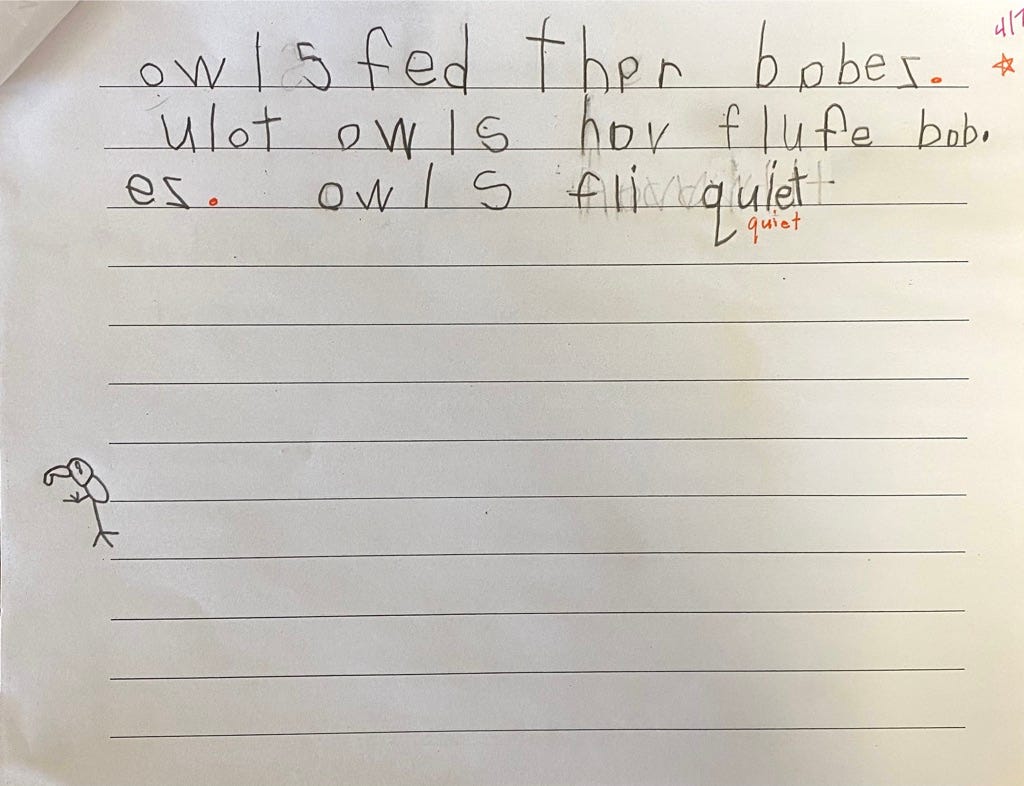 owls fed ther bobes.
ulot owls hov flufe bob.
es. owls fli quiet
quiet